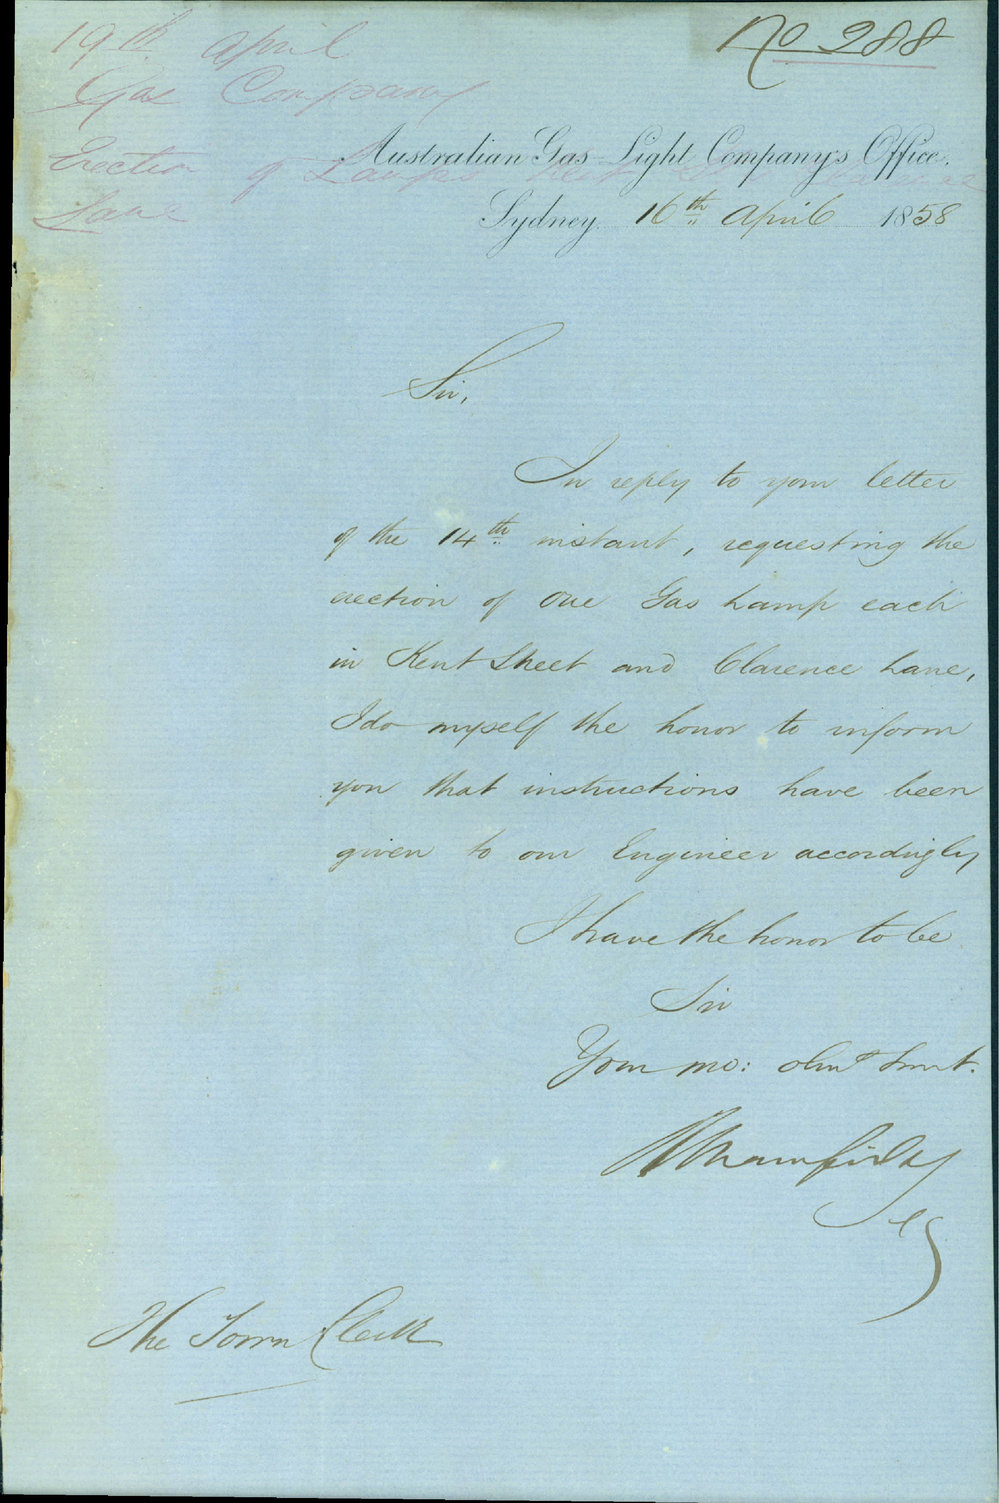 No 288
19th April
Gas Company
Erection of Lamps Kent St & Clarence
Lane
Australian Gas Light Company's Office.
Sydney 16th April 1858
Sir,
In reply to your letter
of the 14th instant, requesting the
erection of One Gas Lamp each
in Kent Street and Clarence Lane,
I do myself the honor to inform
you that instructions have been
given to our Engineer accordingly
I have the honor to be
Sir
Your mo: obnt Servt.
The Town Clerk